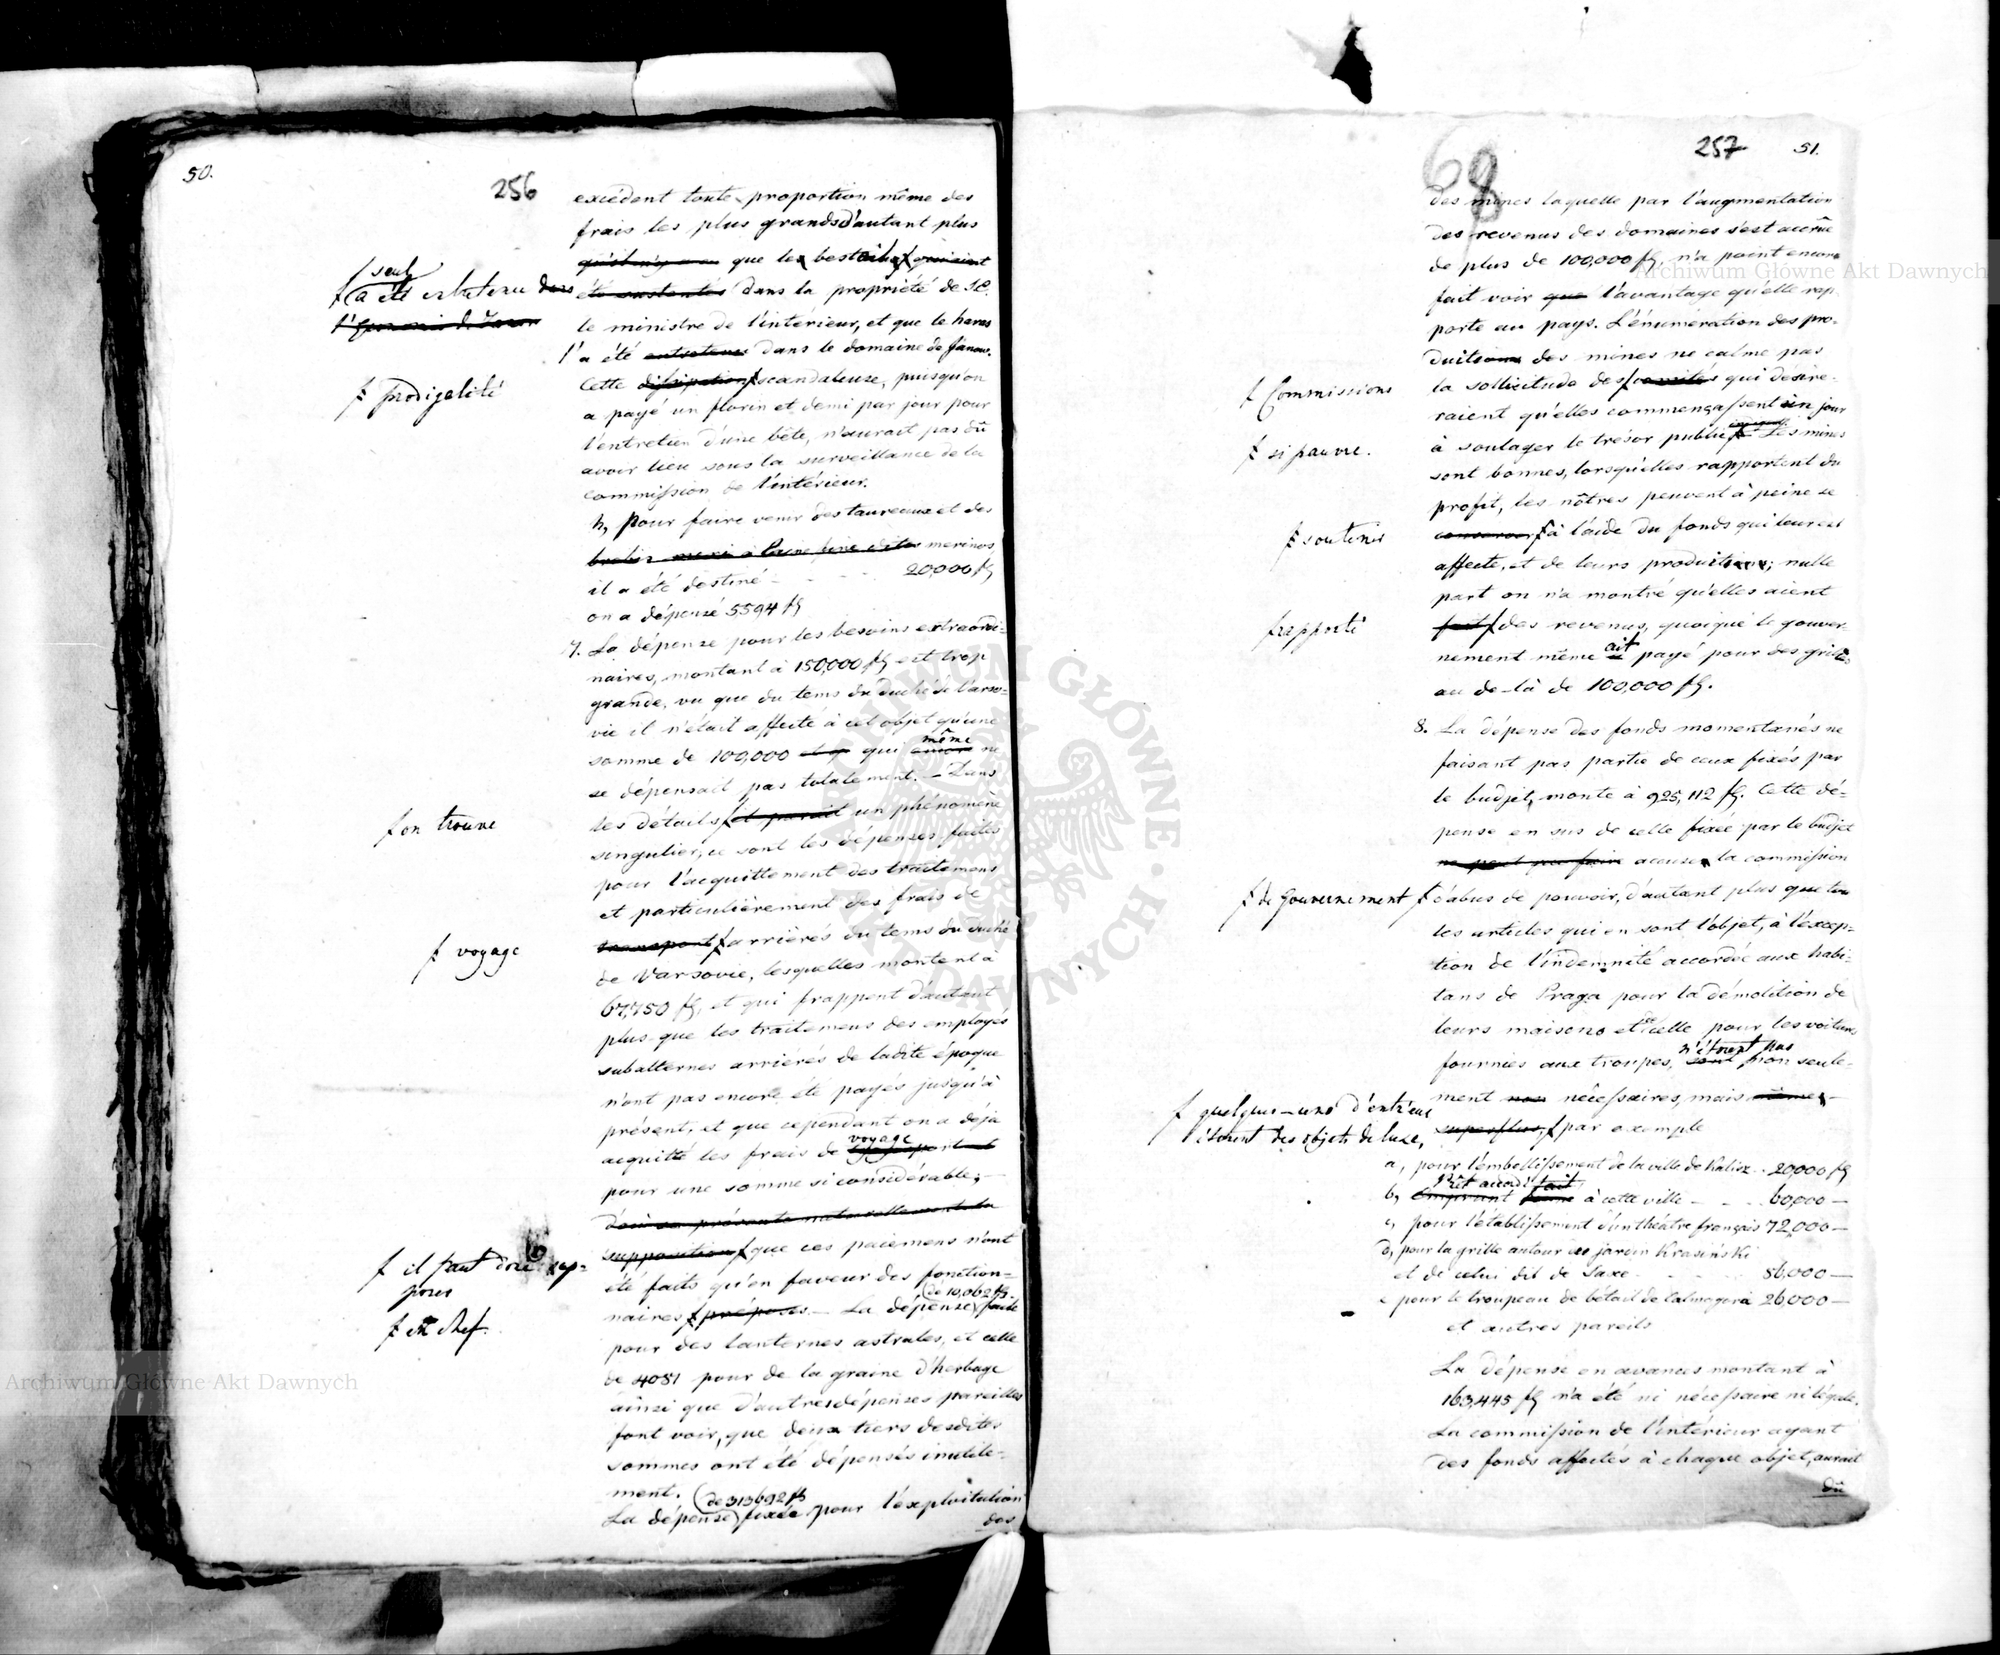 50.
256
excédent toute proportion même des
frais les plus grands d'autant plus
qu'il n'y a eu que les bestiaux avaient
ƒ seul
ƒ a été entretenu dans
été sustentés dans la propriété de SE.
le ministre de l'intérieur, et que le haras
l'a été entretenu dans le domaine de Janow.
ƒ prodigalité
Cette dissipation ƒ scandaleuse, puisqu'on
a payé un florin et demi par jour pour
l'entretien d'une bête, n'aurait pas dû
avoir lieu sous la surveillance de la
commission de l'intérieur.
h, pour faire venir des taureaux et des
brebis merinos
il a été destiné - - - - 20,000 fl
on a dépensé 5,594 fl
7. La dépense pour les besoins extraordi-
naires, montant à 150,000 fl est trop
grande, vu que du tems du duché de Varso-
vie il n'était affecté à cet objet qu'une
même
somme de 100,000 et qui encore ne
se dépensait pas totalement. — Dans
ƒ on trouve
les détails ƒ il parait un phénomène
singulier, ce sont les dépenses faites
pour l'acquittement des traitemens
et particulièrement des frais de
ƒ voyage
transport ƒ arriérés du tems du duché
de Varsovie, lesquelles montent à
67,750 fl, et qui frappent d'autant
plus que les traitemens des employés
subalternes arriérés de ladite époque
n'ont pas encore été payés jusqu'à
présent, et que cependant on a déja
voyage
acquitté les frais de transport
pour une somme si considérable; —
d'où se présente naturellement la
ƒ il faut donc sup-
poser
supposition ƒ que ces paiemens n'ont
été faits qu'en faveur des fonction-
(de 10,062 fl.
ƒ en chef.
naires ƒ préposés. — La dépense) faite
pour des lanternes astrales, et celle
de 4051 pour de la graine d'herbage
ainsi que d'autres dépenses pareilles
font voir, que deux tiers desdites
sommes ont été dépensés inutile-
ment.
(de 313692 fl
La dépense) fixée pour l'exploitation
des
257
51.
68
des mines laquelle par l'augmentation
des revenus des domaines s'est accrüe
de plus de 100,000 fl, n'a point encore
fait voir que l'avantage qu'elle rap-
porte au pays. L'énumération des pro-
duits des mines ne calme pas
ƒ Commissions
la sollicitude des ƒ comités qui désire-
raient qu'elles commençassent un jour
ƒ si pauvre.
à soulager le trésor public ƒ Les mines
sont bonnes, lorsqu'elles rapportent du
profit, les nôtres peuvent à peine se
ƒ soutenir
conserver ƒ à l'aide du fonds qui leur est
affecté, et de leurs productions; nulle
part on n'a montré qu'elles aient
ƒ rapporté
fait ƒ des revenus, quoique le gouver-
ait
nement même a payé pour des grilles
au de-là de 100,000 fl.
8. La dépense des fonds momentanés ne
faisant pas partie de ceux fixés par
le budjet, monte à 925,112 fl. Cette dé-
pense en sus de celle fixée par le budjet
ne peut pas faire accuser la commission
ƒ de Gouvernement
ƒ d'abus de pouvoir, d'autant plus que tous
les articles qui en sont l'objet, à l'excep-
tion de l'indemnité accordée aux habi-
tans de Praga pour la démolition de
leurs maisons et de celle pour les voitures
n'étoient pas
fournies aux troupes, sont non seule-
ment non nécessaires, mais même
ƒ quelques-uns d'entr'eux
étoient des objets de luxe,
superflus, ƒ par exemple
a, pour l'embellissement de la ville de Kalisz - 20,000 fl
prêt accordé fait
b, Emprunt à cette ville - - - 60,000 —
c, pour l'établissement d'un théâtre français 72,000 —
d, pour la grille autour du jardin Krasiński
et de celui dit de Saxe - - - 86,000 —
e pour le troupeau de bétail de 26,000 —
et autres pareils
La dépense en avances montant à
163,445 fl n'a été ni nécessaire ni légale.
La commission de l'intérieur ayant
des fonds affectés à chaque objet, aurait
dû
Archiwum Główne Akt Dawnych
Archiwum Główne Akt Dawnych
ARCHIWUM GŁÓWNE AKT DAWNYCH